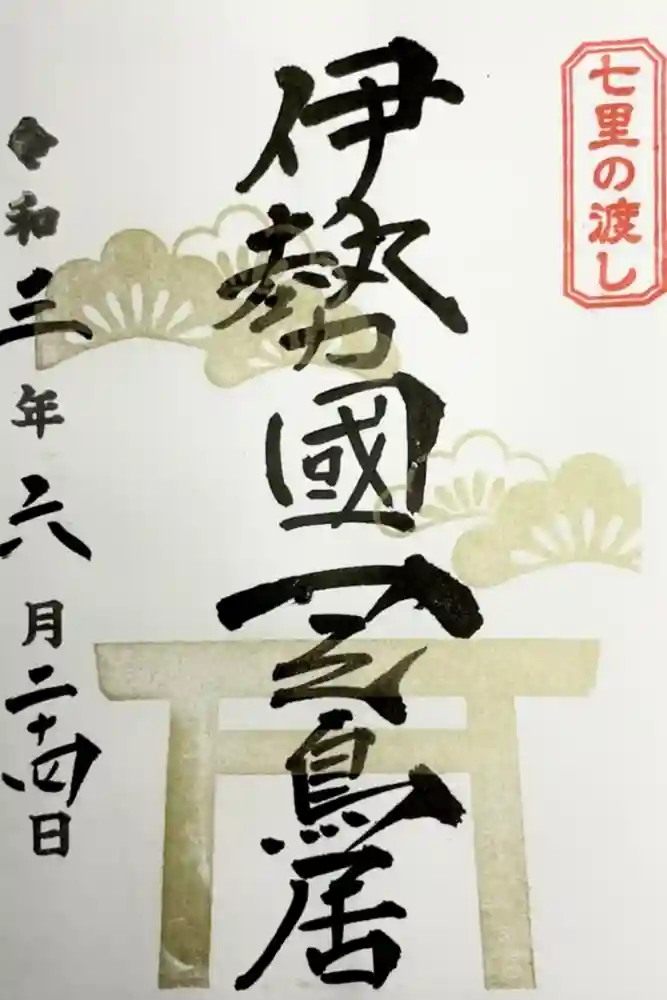 七里の渡し
伊勢國一之鳥居
令和三年六月二十四日